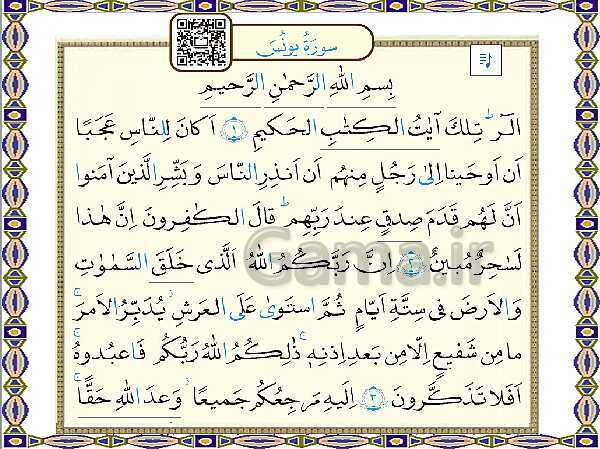 سورَةُ يونُس
بِسمِ اللهِ الرَّحمٰنِ الرَّحيمِ
الٓرٰ ۚ تِلكَ آياتُ الكِتٰبِ الحَكيمِ ١ اَكانَ لِلنّاسِ عَجَبًا
اَن اَوحَينا اِلىٰ رَجُلٍ مِنهُم اَن اَنذِرِ النّاسَ وَ بَشِّرِ الَّذينَ آمَنوا
اَنَّ لَهُم قَدَمَ صِدقٍ عِندَ رَبِّهِم ۗ قالَ الكٰفِرونَ اِنَّ هٰذا
لَسٰحِرٌ مُبينٌ ٢ اِنَّ رَبَّكُمُ اللهُ الَّذى خَلَقَ السَّمٰوٰتِ
وَالاَرضَ فى سِتَّةِ اَيّامٍ ثُمَّ استَوىٰ عَلَى العَرشِ ۖ يُدَبِّرُ الاَمرَ ۖ
ما مِن شَفيعٍ اِلّا مِن بَعدِ اِذنِهٖ ۚ ذٰلِكُمُ اللهُ رَبُّكُم فَاعبُدوهُ ۚ
اَفَلا تَذَكَّرونَ ٣ اِلَيهِ مَرجِعُكُم جَميعًا ۖ وَعدَ اللهِ حَقًّا ۚ
Gama.ir